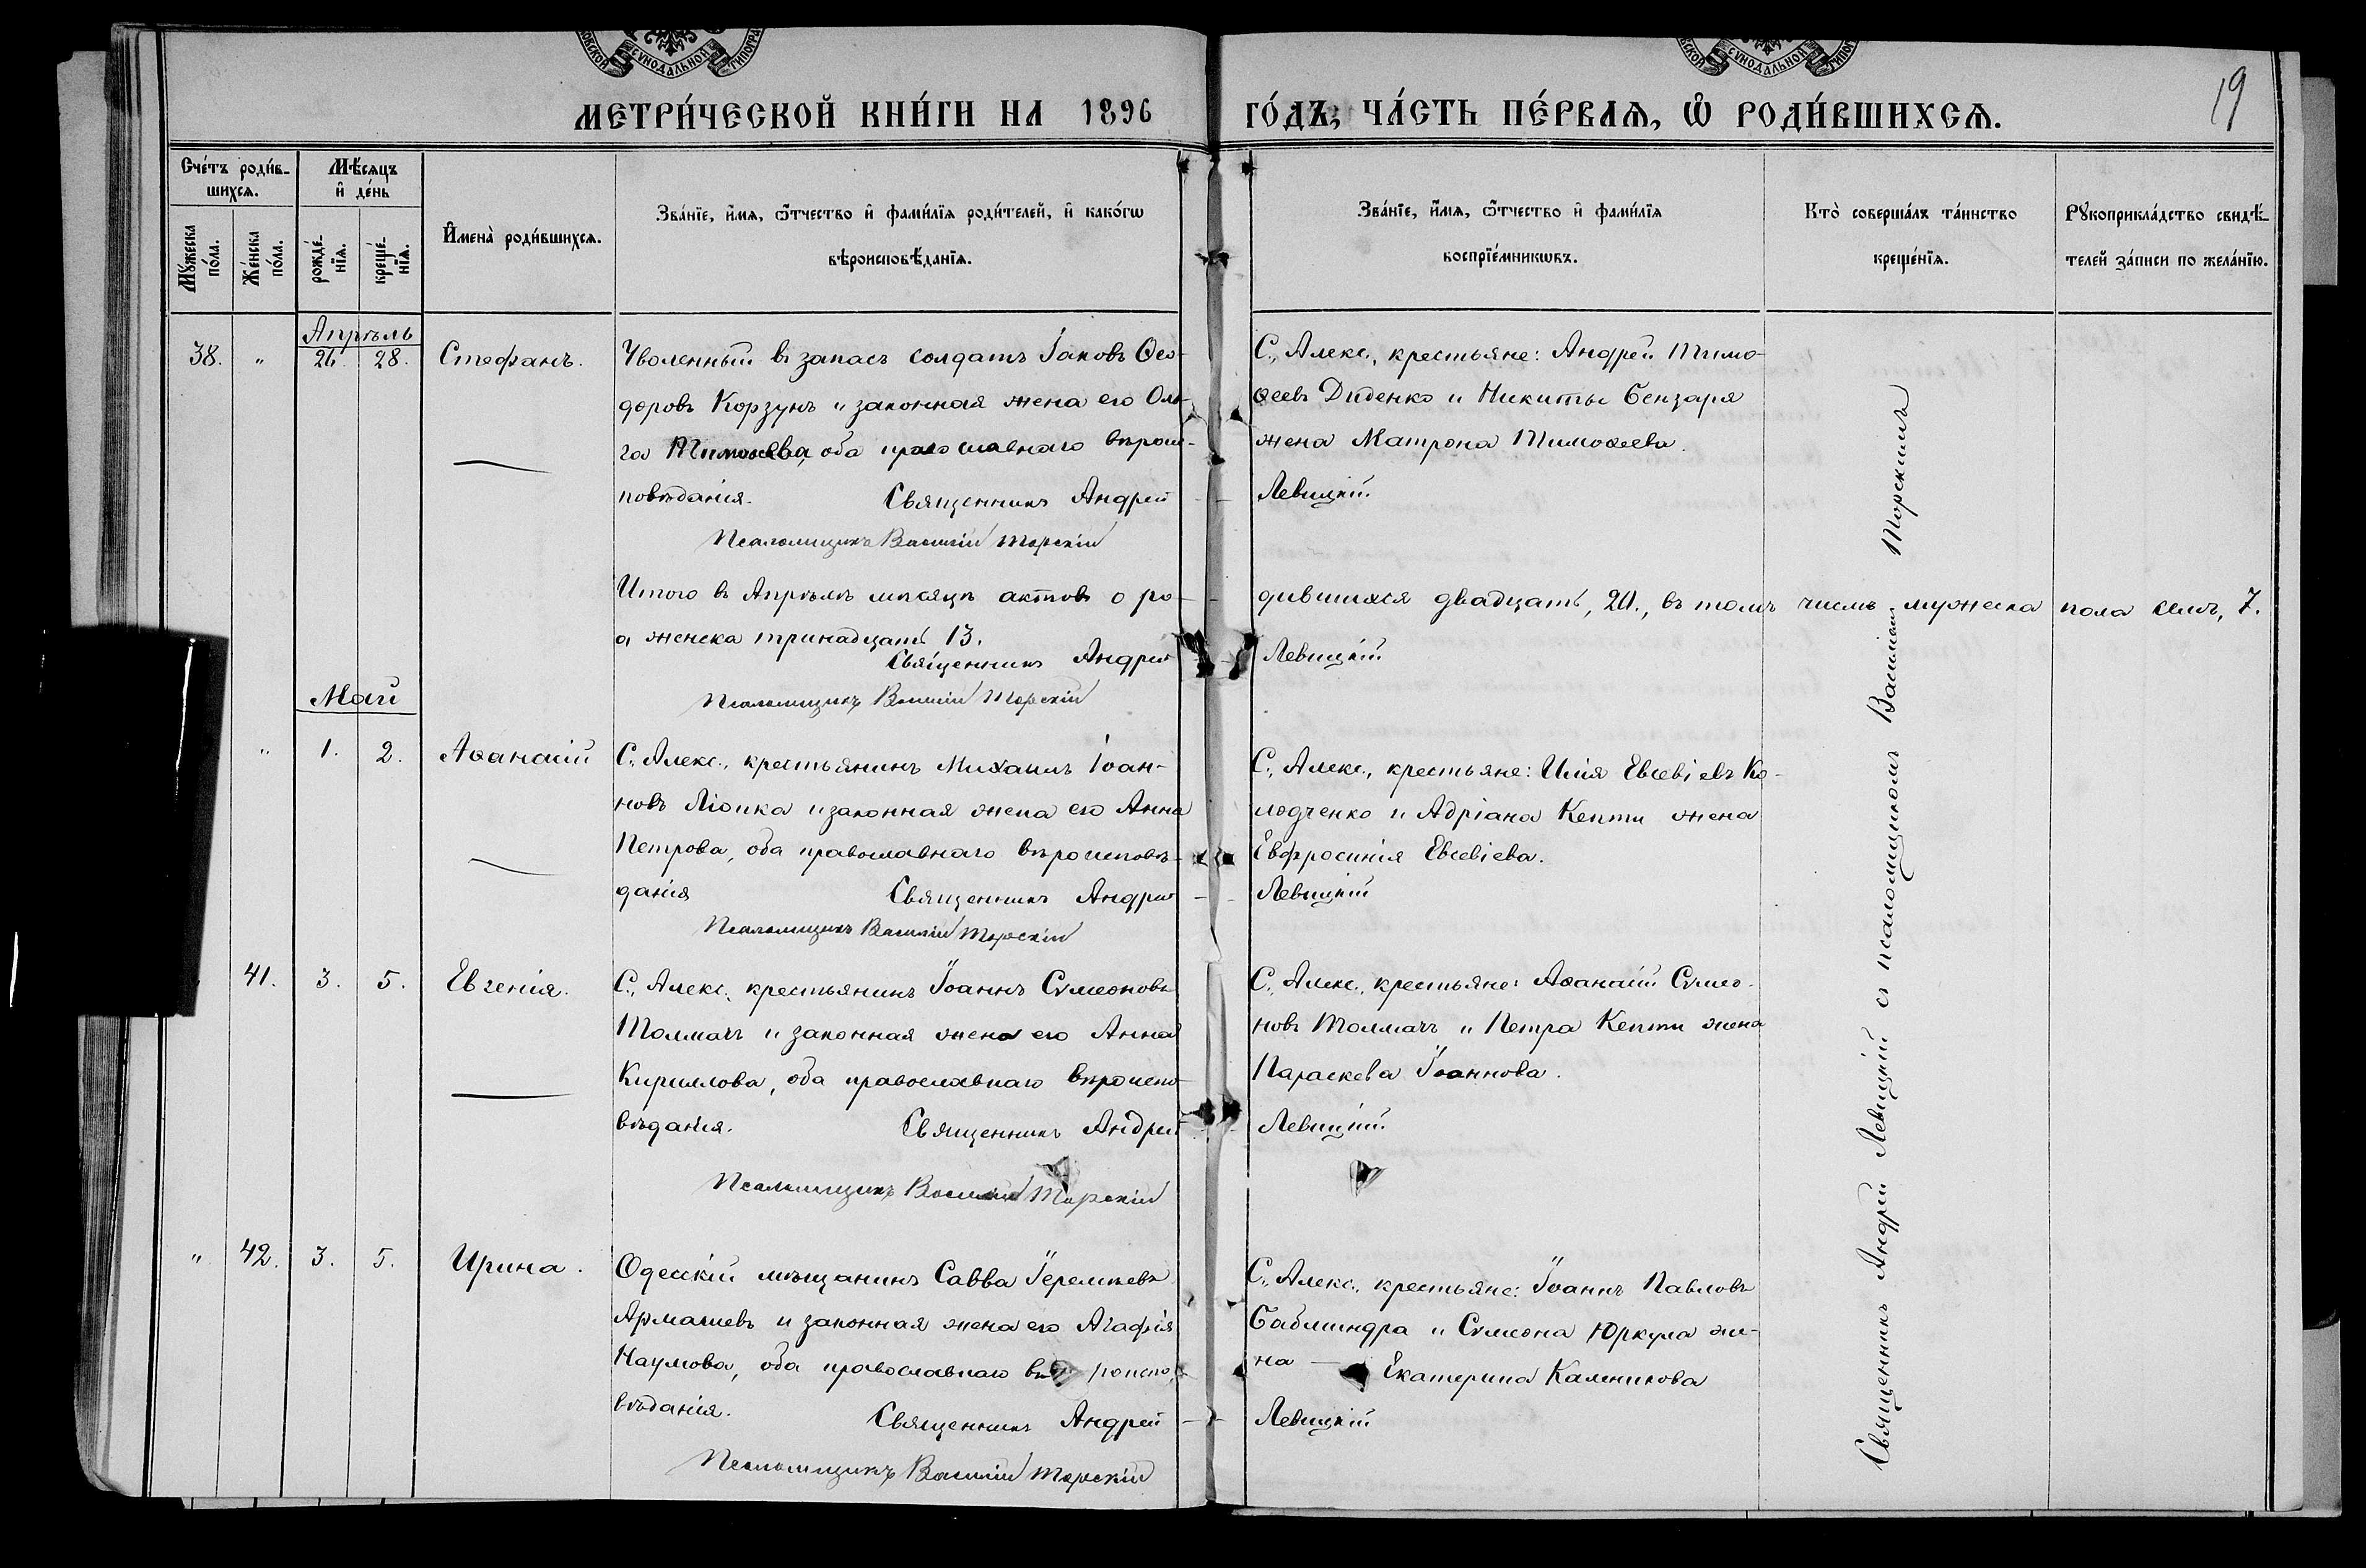 МЕТРИ́ЧЕСКОЙ КНИ́ГИ НА 1896 ГО́ДЪ, ЧА́СТЬ ПЕ́РВАѦ, Ѡ҆ РОДИ́ВШИХСѦ.
19
Сче́тъ роди́в-
шихсѧ.
Мѣ́сѧцъ
и҆ де́нь
Мꙋ́жеска
по́ла.
Же́нска
по́ла.
рожде́-
нїѧ.
креще́-
нїѧ.
И҆мена̀ роди́вшихсѧ.
Зва́нїе, и҆́мѧ, ѻ҆́тчество и҆ фами́лїѧ роди́телей, и҆ како́гѡ
вѣроисповѣ́данїѧ.
Зва́нїе, и҆́мѧ, ѻ҆́тчество и҆ фами́лїѧ
воспрїе́мникѡвъ.
Кто̀ соверша́лъ та́инство
креще́нїѧ.
Рꙋкоприкла́дство свидѣ́-
телей за́писи по жела́нїю.
Апрѣль
38. " 26. 28. Стефанъ.
Уволенный въ запасъ солдатъ Іаковъ Ѳео-
доровъ Корзунъ и законная жена его Оль-
га Тимоѳеева, оба православнаго вѣроис-
повѣданія. Священникъ Андрей Левицкій.
Псаломщикъ Василій Торскій
С., Алекс., крестьяне: Андрей Тимо-
ѳеевъ Диденко и Никиты Бензаря
жена Матрона Тимоѳеева.
Итого въ Апрѣлѣ мѣсяцѣ актовъ о ро-дившихся двадцать, 20., въ томъ числѣ мужеска пола семь, 7.
а женска тринадцать 13.
Священникъ Андрей Левицкій
Псаломщикъ Василій Торскій
Май
" 1. 2. Аѳанасій
С., Алекс., крестьянинъ Михаилъ Іоан-
новъ Ліопка и законная жена его Анна
Петрова, оба православнаго вѣроисповѣ-
данія Священникъ Андрей Левицкій
Псаломщикъ Василій Торскій
С., Алекс., крестьяне: Илія Евсевіевъ Ко-
лодченко и Адріана Кепти жена
Евфросинія Евсевіева.
41. 3. 5. Евгенія.
С., Алекс., крестьянинъ Іоаннъ Сѵмеоновъ
Толмачъ и законная жена его Анна
Кириллова, оба православнаго вѣроиспо-
вѣданія. Священникъ Андрей Левицкій.
Псаломщикъ Василій Торскій
С., Алекс., крестьяне: Аѳанасій Сѵмео-
новъ Толмачъ и Петра Кепти жена
Параскева Іоаннова.
" 42. 3. 5. Ирина.
Одесскій мѣщанинъ Савва Іереміевъ
Армашевъ и законная жена его Агафія
Наумова, оба православнаго вѣроиспо-
вѣданія. Священникъ Андрей Левицкій
Псаломщикъ Василій Торскій
С., Алекс., крестьяне: Іоаннъ Павловъ
Сѵмеона Юркула же-
на — Екатерина Каленикова
Священникъ Андрей Левицкій съ псаломщикомъ Василіемъ Торскимъ